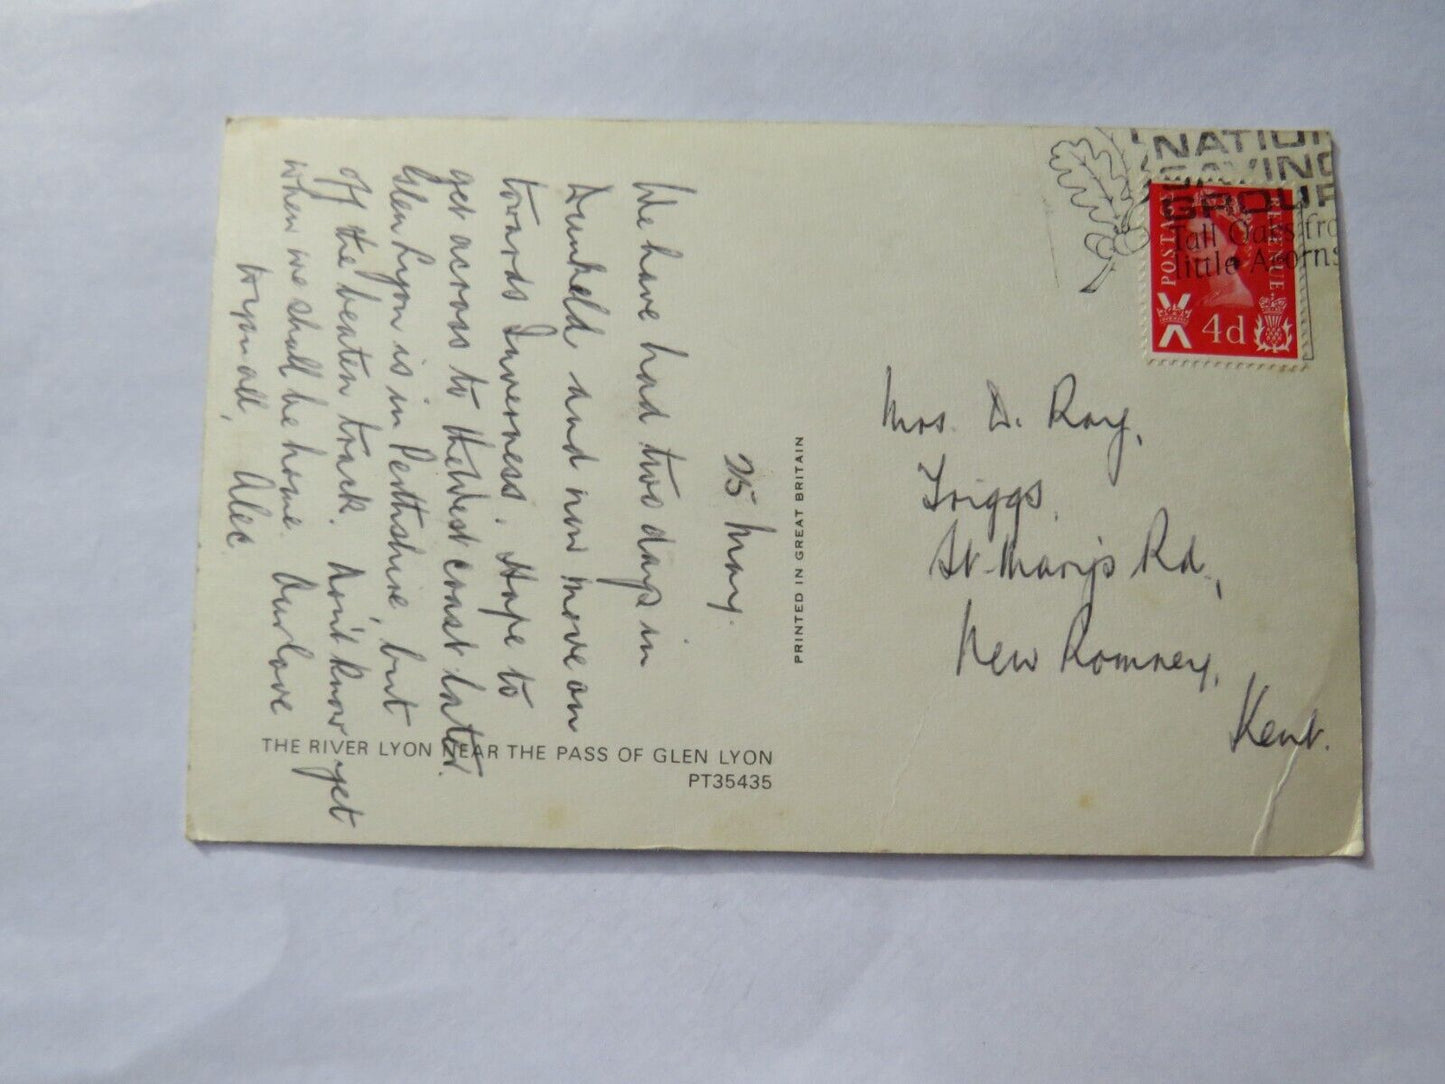 25 May.
We have had two days in
Dunkeld and now move on
towards Inverness. Hope to
get across to the West coast later.
Glen Lyon is in Perthshire, but
off the beaten track. Don't know yet
when we shall be home. Our love
to you all, Alec
THE RIVER LYON NEAR THE PASS OF GLEN LYON
PT35435
PRINTED IN GREAT BRITAIN
NATIO
SAVING
GROUP
Tall Oaks fro
little Acorns
POSTAGE REVENUE
4d
Mrs. D. Ray,
Triggs,
St. Mary's Rd.,
New Romney,
Kent.